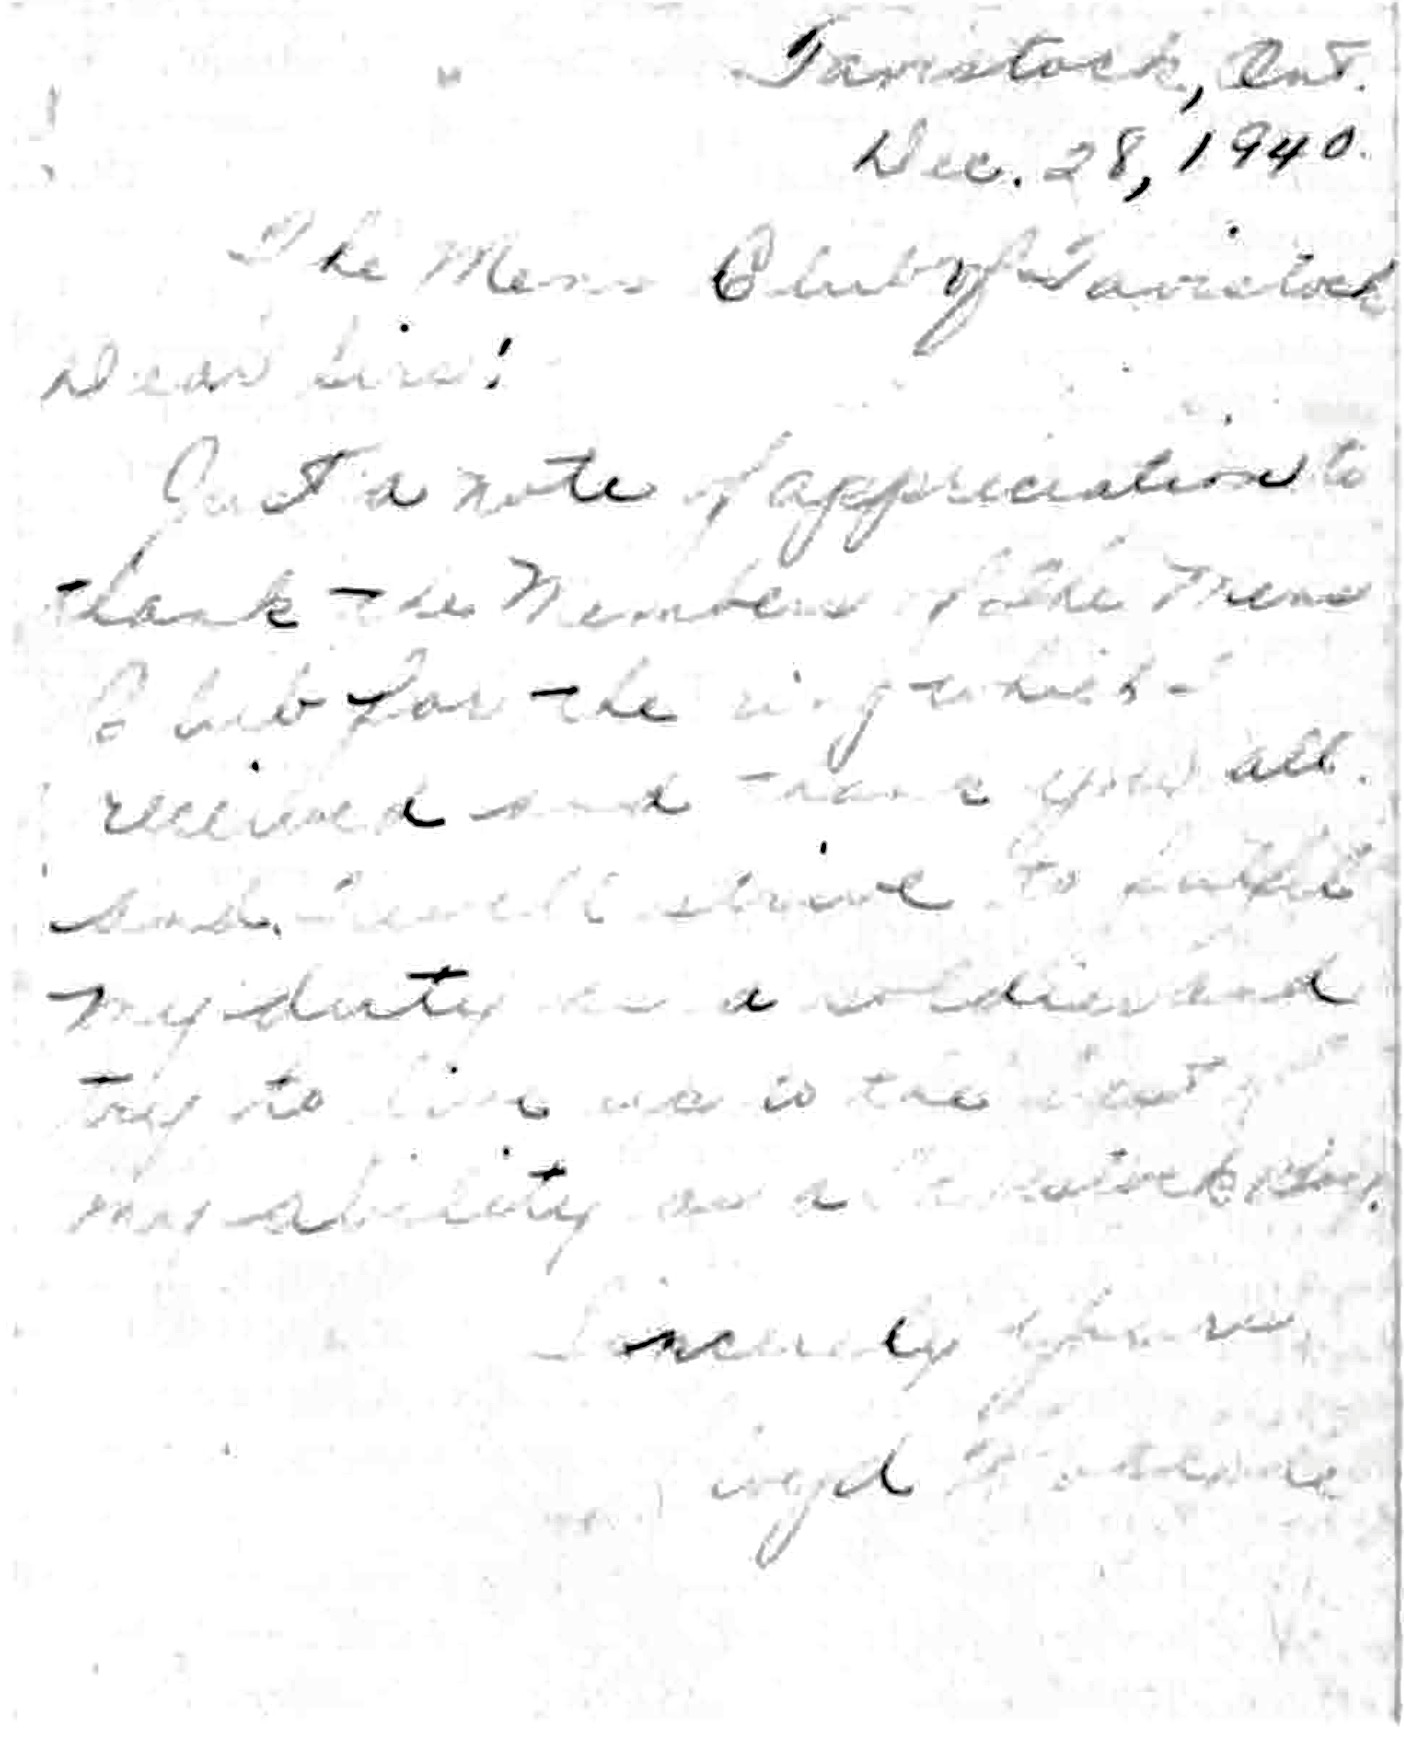 Tavistock, Ont.
Dec. 28, 1940.
The Mens Club of Tavistock
Dear Sirs!
Just a note of appreciation to
thank the Members of the Mens
Club for the ring which I
received and thank you all.
and. I will strive to fulfil
my duty as a soldier and
try to live up to the best of
my ability as a Tavistock Boy.
Sincerely yours